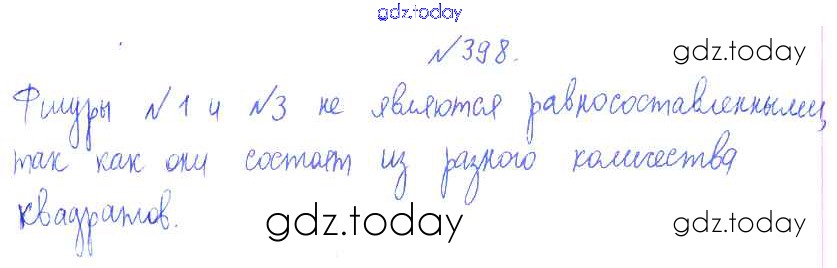 gdz.today
№398. gdz.today
Фигуры №1 и №3 не являются равносоставленными,
так как они состоят из разного количества
квадратов. gdz.today gdz.today